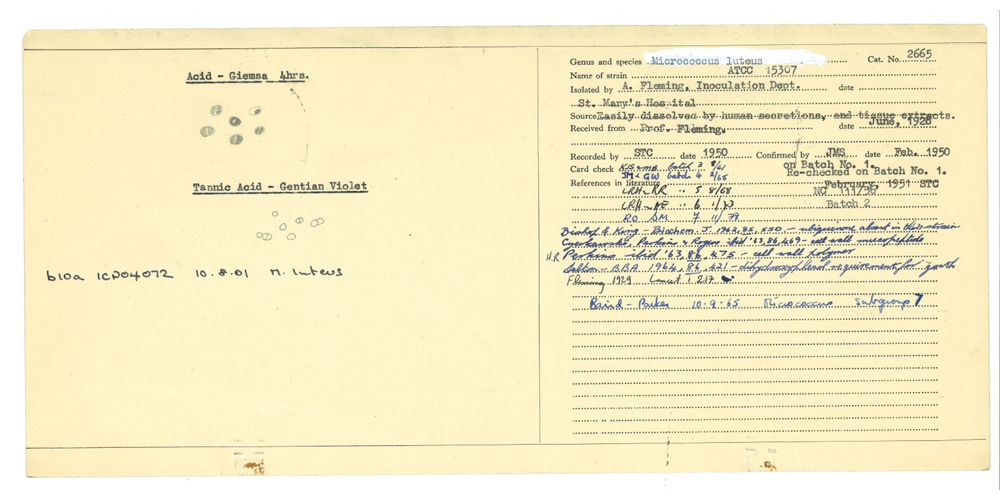 Acid - Giemsa 4hrs.
Tannic Acid - Gentian Violet
b10a ICP04072 10.8.01 M. luteus
Genus and species Micrococcus luteus Cat. No. 2665
Name of strain ATCC 15307
Isolated by A. Fleming, Inoculation Dept. date
St. Mary's Hospital
Source Easily dissolved by human secretions, and tissue extracts.
Received from Prof. Fleming. date June, 1928
Recorded by STC date 1950 Confirmed by JMS date Feb. 1950
on Batch No. 1.
Card check KJS & MB batch 3 8/61
Re-checked on Batch No. 1.
JM & GW batch 4 2/65
References in literature February, 1951 STC
LRH-RR .. 5 8/68
LRH-AE .. 6 1/73 Batch 2
RO SM 7 11/79
Bishop & King - Biochem J. 1962, 85, 550 - ubiquinone absent in this strain
Perkins & Rogers ibid '63, 86, 469 - cell wall mucopeptide
H.R. Perkins ibid '63, 86, 475 - cell wall polymer
Salton - BBA 1964, 86, 421 - requirements for growth
Fleming 1929 Lancet 1 217
Baird-Parker 10.9.65 Micrococcus Subgroup 7